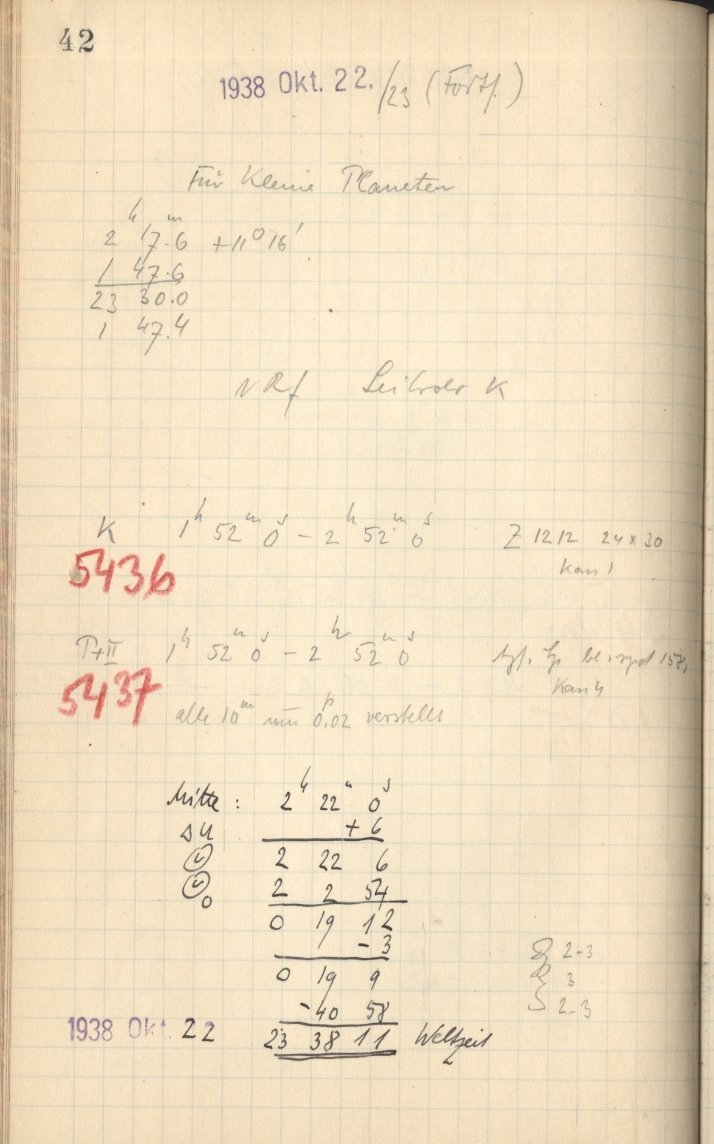 42
1938 Okt. 22./23 (Forts.)
Für Kleine Planeten
2 h 17.6 m +11° 16'
1 47.6
23 30.0
1 47.4
K
K 1h 52m 0s – 2h 52m 0s Z 1212 24 x 30
5436
T+II 1h 52m 0s – 2h 52m 0s
5437
alle 10m um 0p.02 verstellt
Mitte : 2h 22m 0s
ΔU + 6
2 22 6
2 2 54
0 19 12
– 3
0 19 9
-40 58
1938 Okt. 22 23 38 11 Weltzeit
2-3
3
2-3